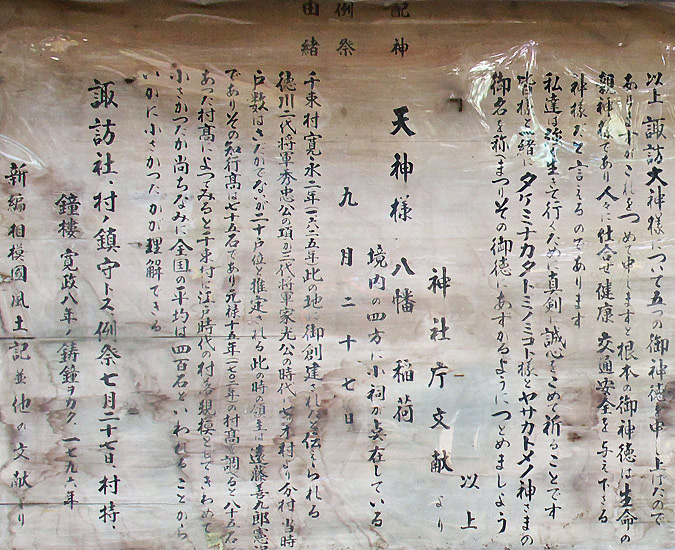 以上 諏訪大神様について五つの御神徳を申し上げたので
ありますがこれをつめて申しますと根本の御神徳は生命の
親神様であり人々に仕合せ健康、交通安全を与え下さる
神様だと言えるのであります
私達は強く生きて行くために真剣に誠心をこめて祈ることです
皆様と緒にタケミナカタトミノミコト様とヤサカトメノ神さまの
御名を称へまつりその御徳にあずかるようにつとめましよう
以上
神社庁文献より
配神 天神様 八幡 稲荷
境内の四方に小祠が点在している
例祭 九月二十七日
由緒 千束村寛永二年一六二五年此の地に御創建されたと伝えられる
徳川二代将軍秀忠公の頃か三代将軍家光公の時代 村より分村 当時
戸数はさだかでないが二十戸位と推定される此の時の領主は遠藤善九郎憲
でありその知行高は七十五石であり元禄十五年一七〇二年の村高を調ると八十五石
あった村高によってみると千束村は江戸時代の村落規模としてきわめて
小さかつたか尚ちなみに全国の平均は四百石といわれることから
いかに小さかつたかが理解できる
諏訪社、村ノ鎮守トス、例祭七月二十七日、村持、
鐘楼 寛政八年ノ鋳鐘ヲカク、一七九六年
新編相模國風土記並他の文献より